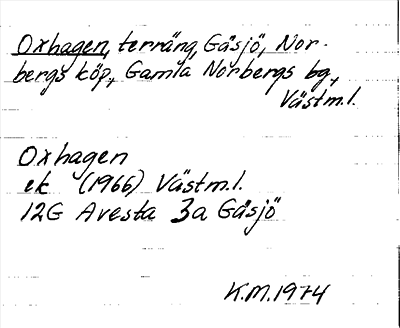 Oxhagen, terräng, Gåsjö, Nor-
bergs köp., Gamla Norbergs bg.,
Västm.l.
Oxhagen
ek (1966) Västm.l.
12G Avesta 3a Gåsjö
K.M.1974